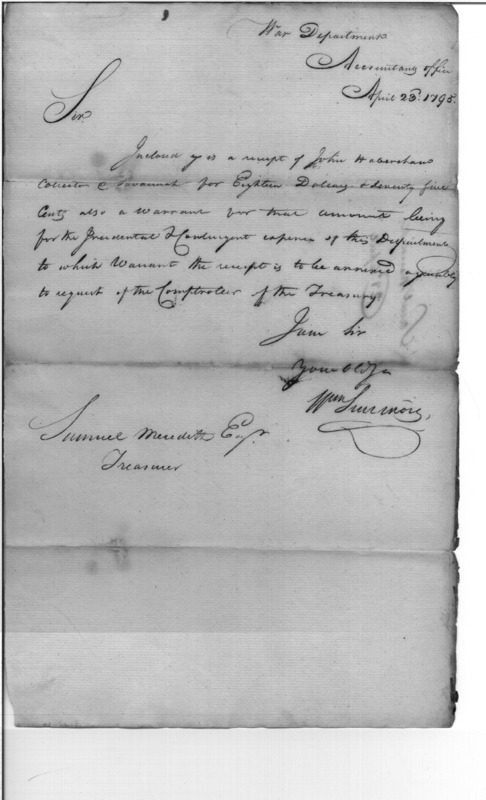 War Department
Accountants office
April 23d. 1795.
Sir
Inclosed is a receipt of John Habersham
Collector Savannah for Eighteen Dollars & seventy five
Cents also a Warrant for that amount being
for the Incidental & Contingent expences of this Department
to which Warrant the receipt is to be annexed agreeably
to request of the Comptroller of the Treasury
I am Sir
Your
Wm Simmons
Samuel Meredith Esqr.
Treasurer